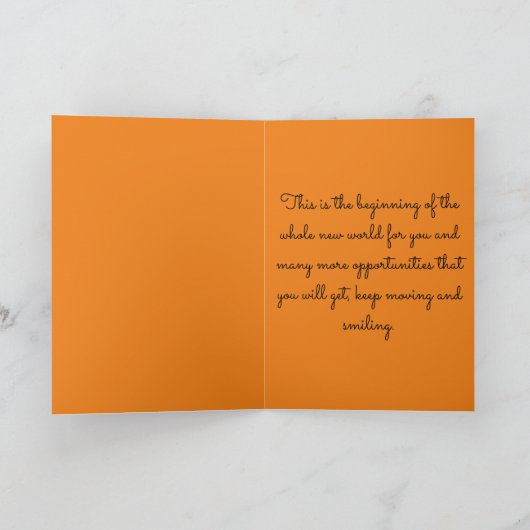 This is the beginning of the
whole new world for you and
many more opportunities that
you will get, keep moving and
smiling.